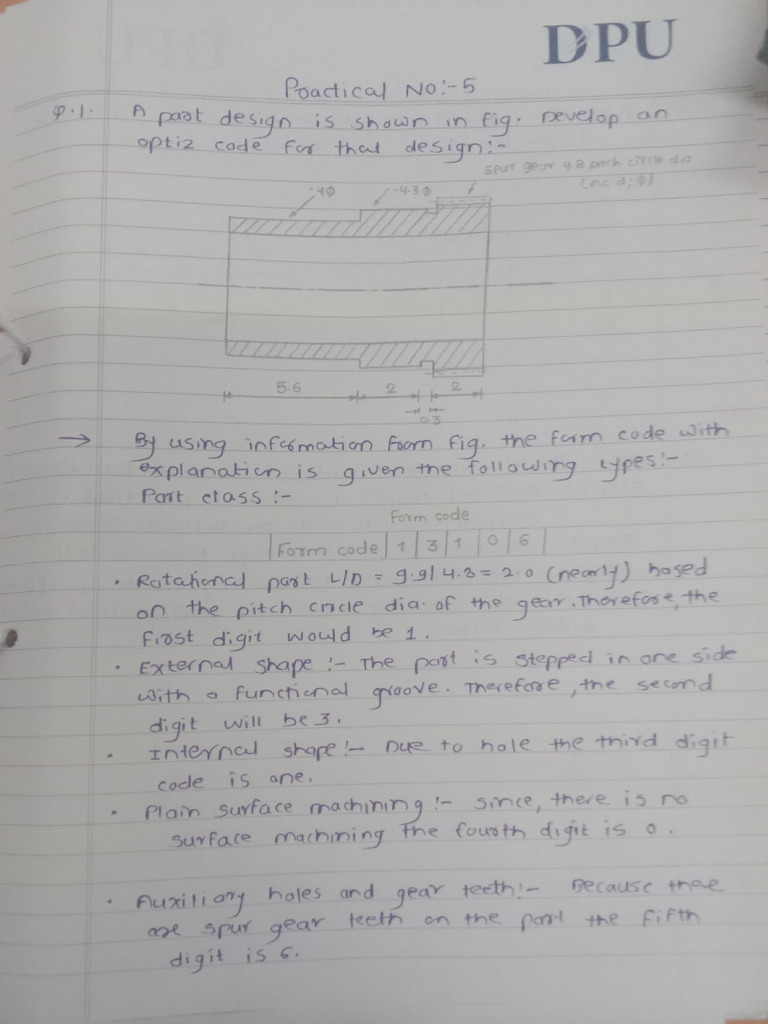 DPU
Practical No:-5
Q.1. A part design is shown in fig. Develop an
optiz code for that design:-
spur gear 4.8 pitch circle dia
-4ϕ -4.3ϕ
5.6 2 2
0.3
→ By using information from fig. the form code with
explanation is given the following types:-
Part class :-
Form code
Form code | 1 | 3 | 1 | 0 | 6 |
• Rotational part L/D = 9.9/4.8 = 2.0 (nearly) based
on the pitch circle dia. of the gear. Therefore, the
first digit would be 1.
• External shape :- The part is stepped in one side
with a functional groove. Therefore, the second
digit will be 3.
• Internal shape :- Due to hole the third digit
code is one.
• Plain surface machining :- since, there is no
surface machining the fourth digit is 0.
• Auxiliary holes and gear teeth :- Because there
are spur gear teeth on the part the fifth
digit is 6.